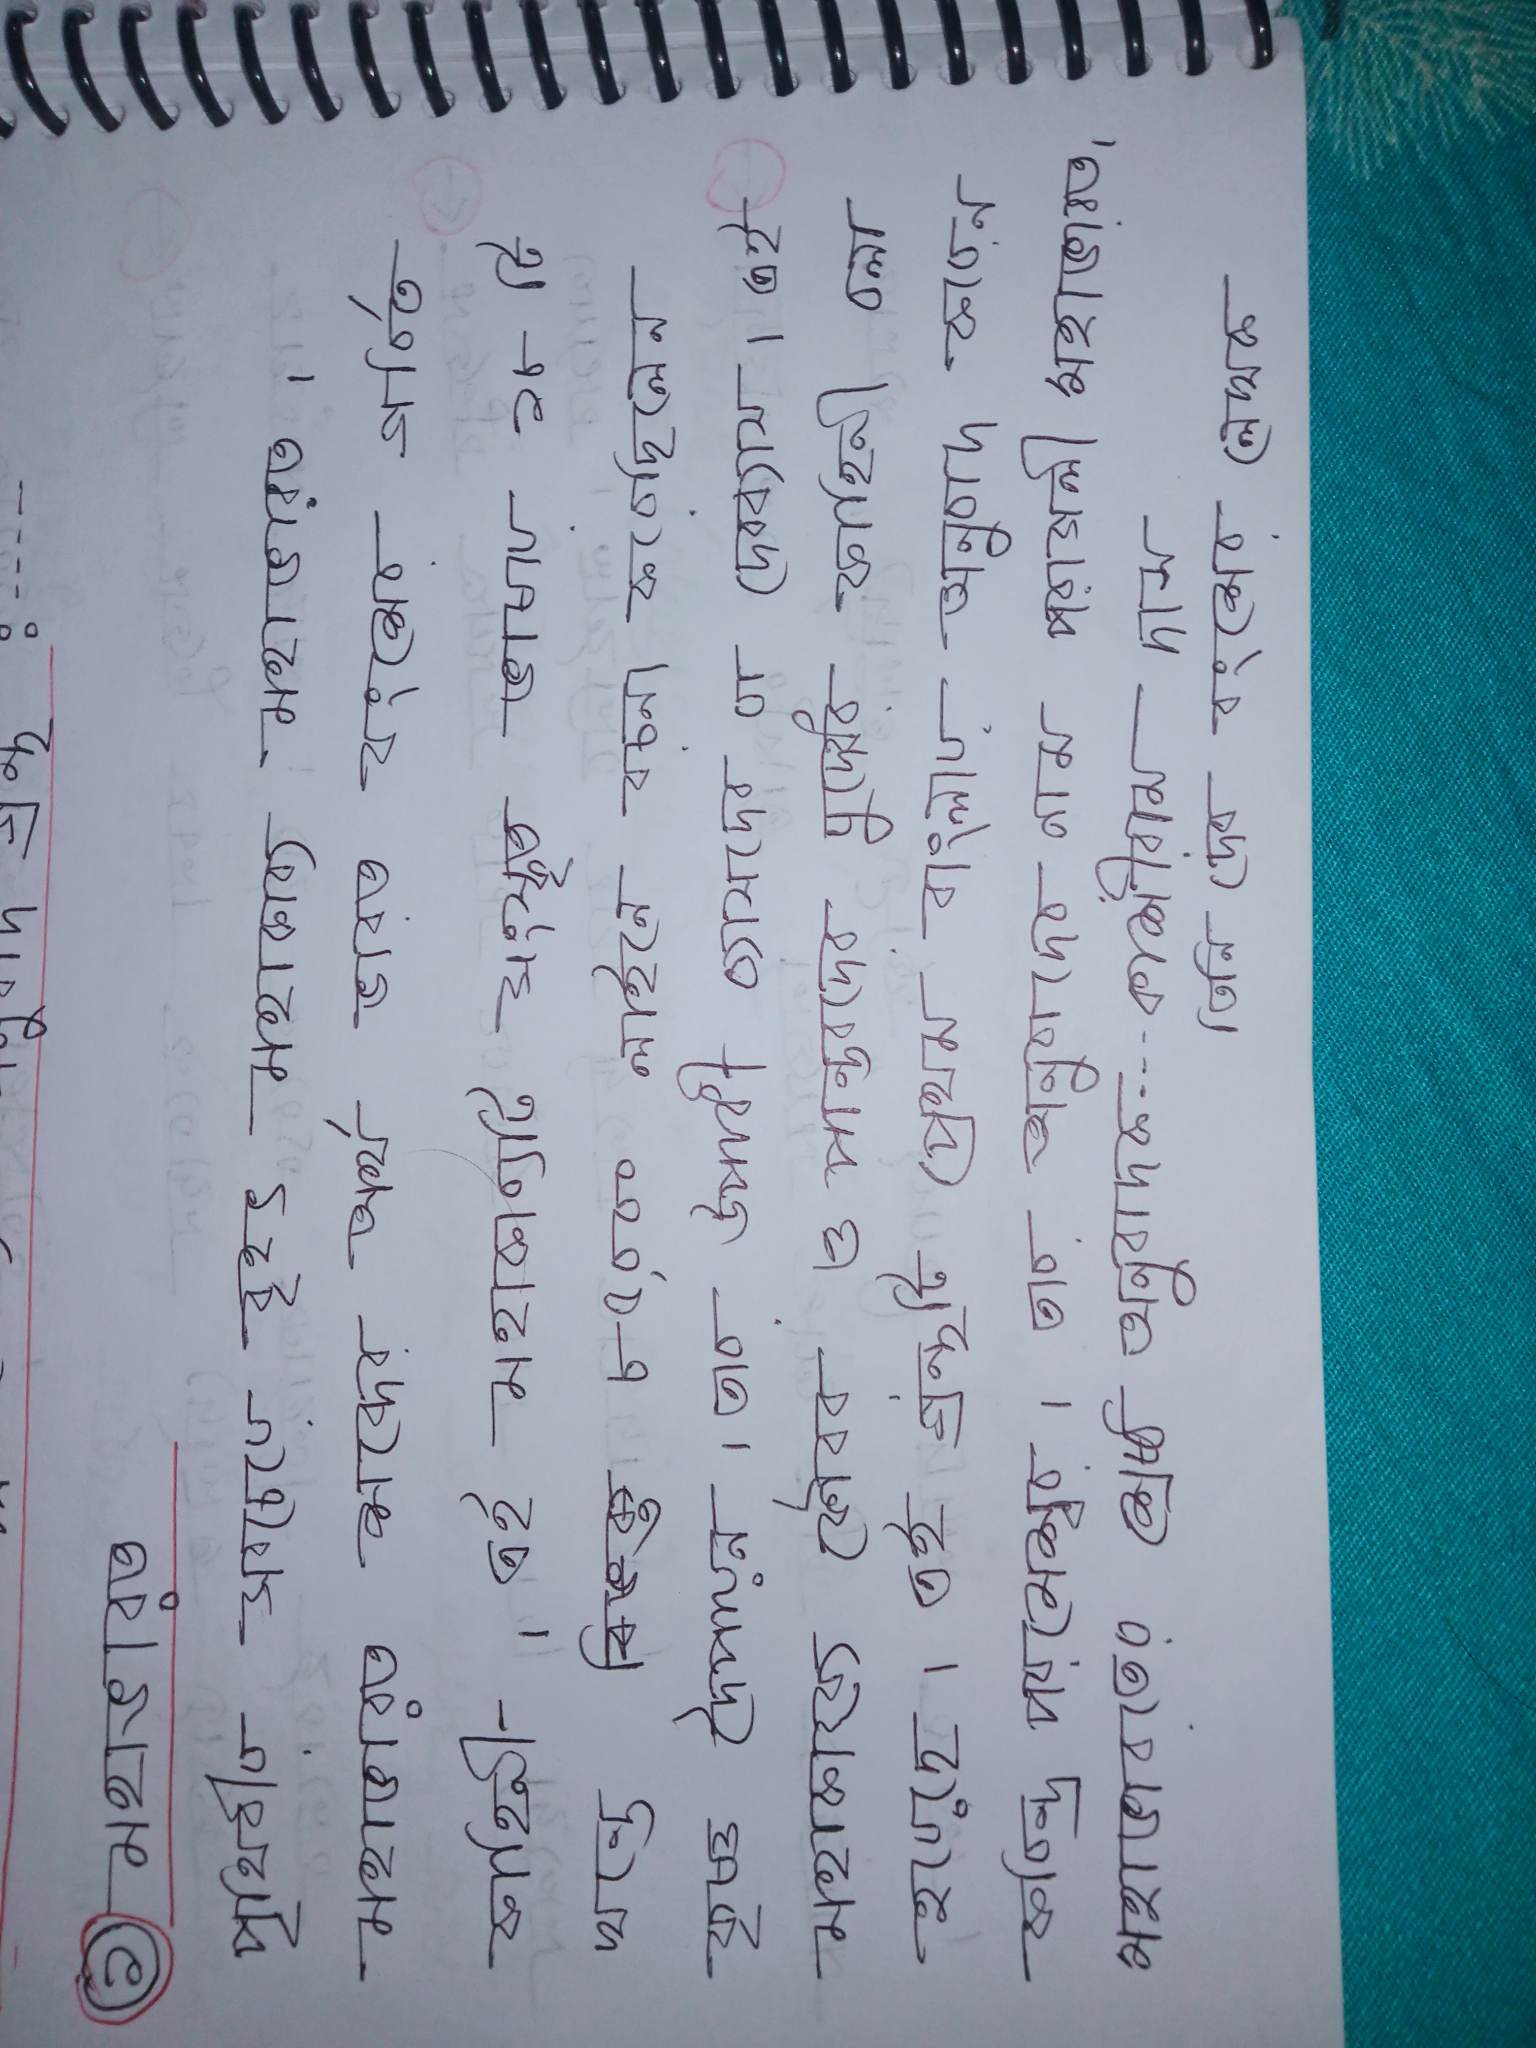 অনুবাদ গ্রন্থ :----
২ মহাভারত
পৃথিবীর সবচেয়ে বৃহৎ মহাকাব্য মহাভারত ।
মহাভারত শব্দের অর্থ ভারত বংশের
কাহিনী- । এই মহাকাব্যটি সংস্কৃত ভাষায় ১৮ টি
খন্ডে বিভক্ত ৮৫,০০০ লাইনে রচনা করেছিলেন
কৃষ্ণ দৈপায়ন । তার উপাধী ব্যাসদেব বা দেবব্যাস । এই
মহাকাব্যে কৌরব ও পান্ডবদের যুদ্ধের কাহিনী বলা
হয়েছে । এই গ্রন্থটি প্রেথম বাংলায় অনুবাদ করেন
কবিন্দ্র পরমেশ্বর । তার অনুবাদের নাম পরাগলী মহাভারত,
মহাভারতের শ্রেষ্ঠ অনুবাদক--- কাশীরাম দাস
তিনি দেব বংশের লেখক